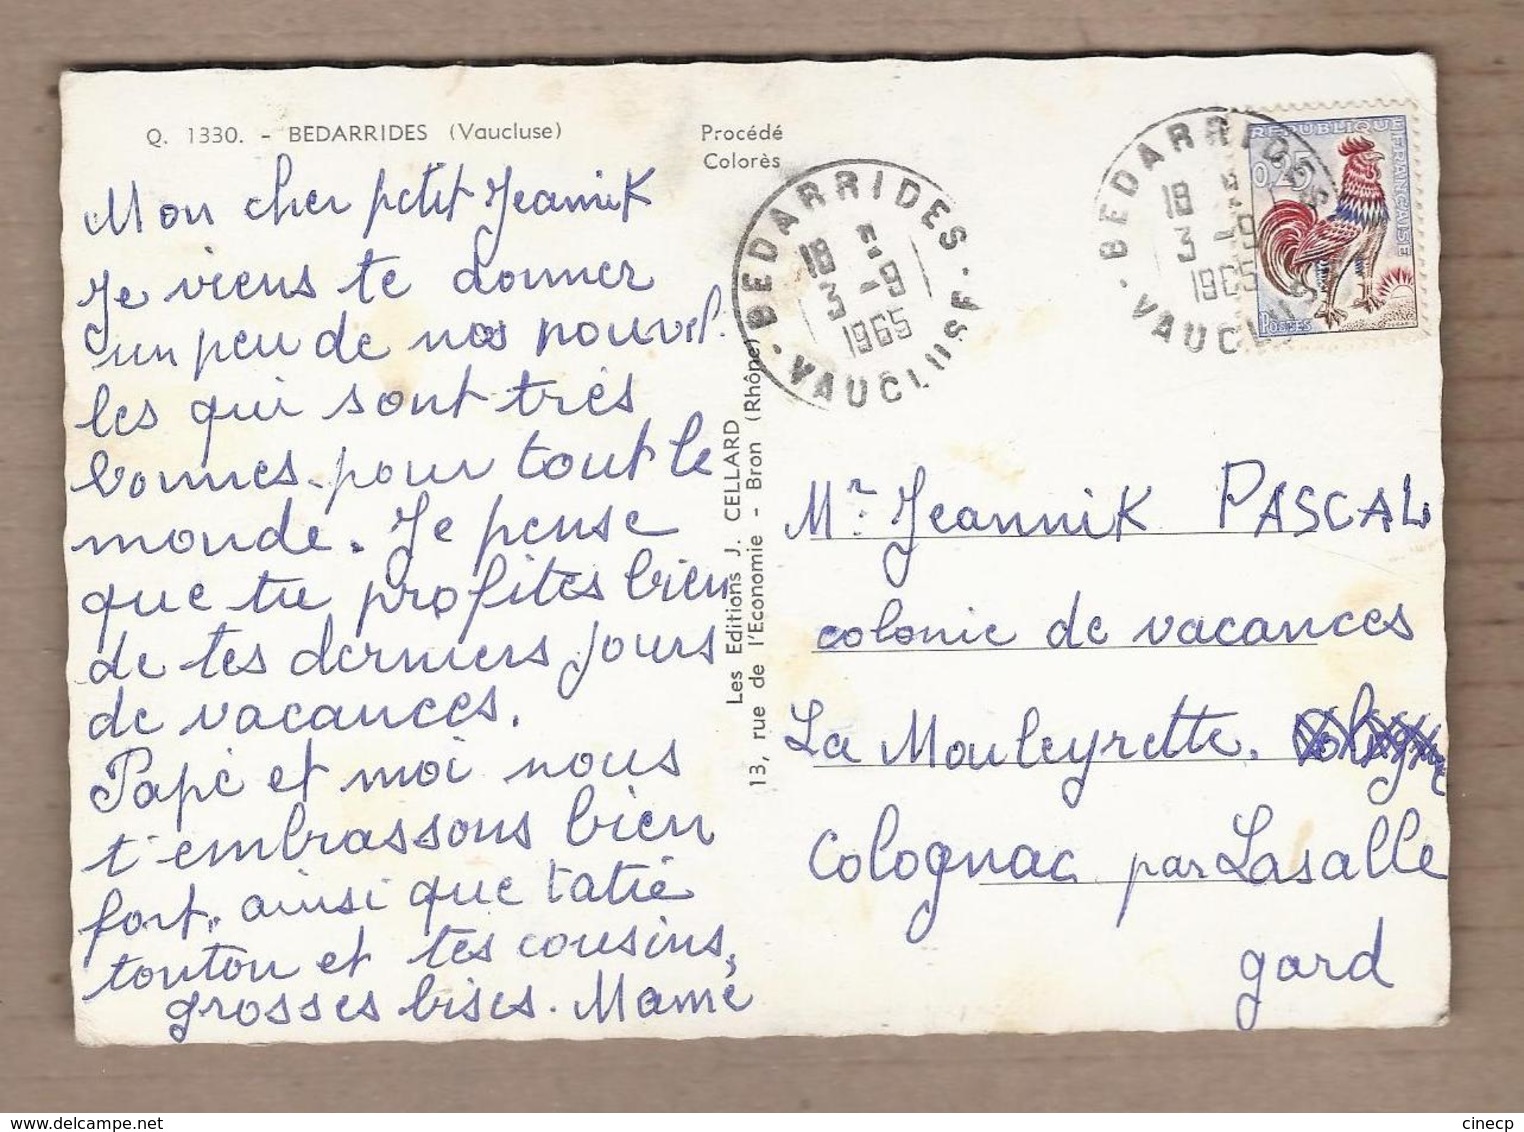 Q. 1330. - BEDARRIDES (Vaucluse)
Procédé
Colorès
Mon cher petit Jeannik
Je viens te donner
un peu de nos nouvel.
les qui sont très
bonnes pour tout le
monde. Je pense
que tu profites bien
de tes derniers jours
de vacances.
Papé et moi nous
t'embrassons bien
fort, ainsi que tatie
tonton et tes cousins,
grosses bises. Mamé
Les Editions J. CELLARD
13, rue de l'Economie - Bron (Rhône)
BEDARRIDES
18 H
3 -9
1965
VAUCLUSE
BEDARRIDES
18 H
3 -9
1965
VAUCLUSE
REPUBLIQUE FRANÇAISE
0,25
POSTES
Mr Jeannik PASCAL
colonie de vacances
La Mouleyrette.
Colognac par Lasalle
gard
www.delcampe.net
cinecp